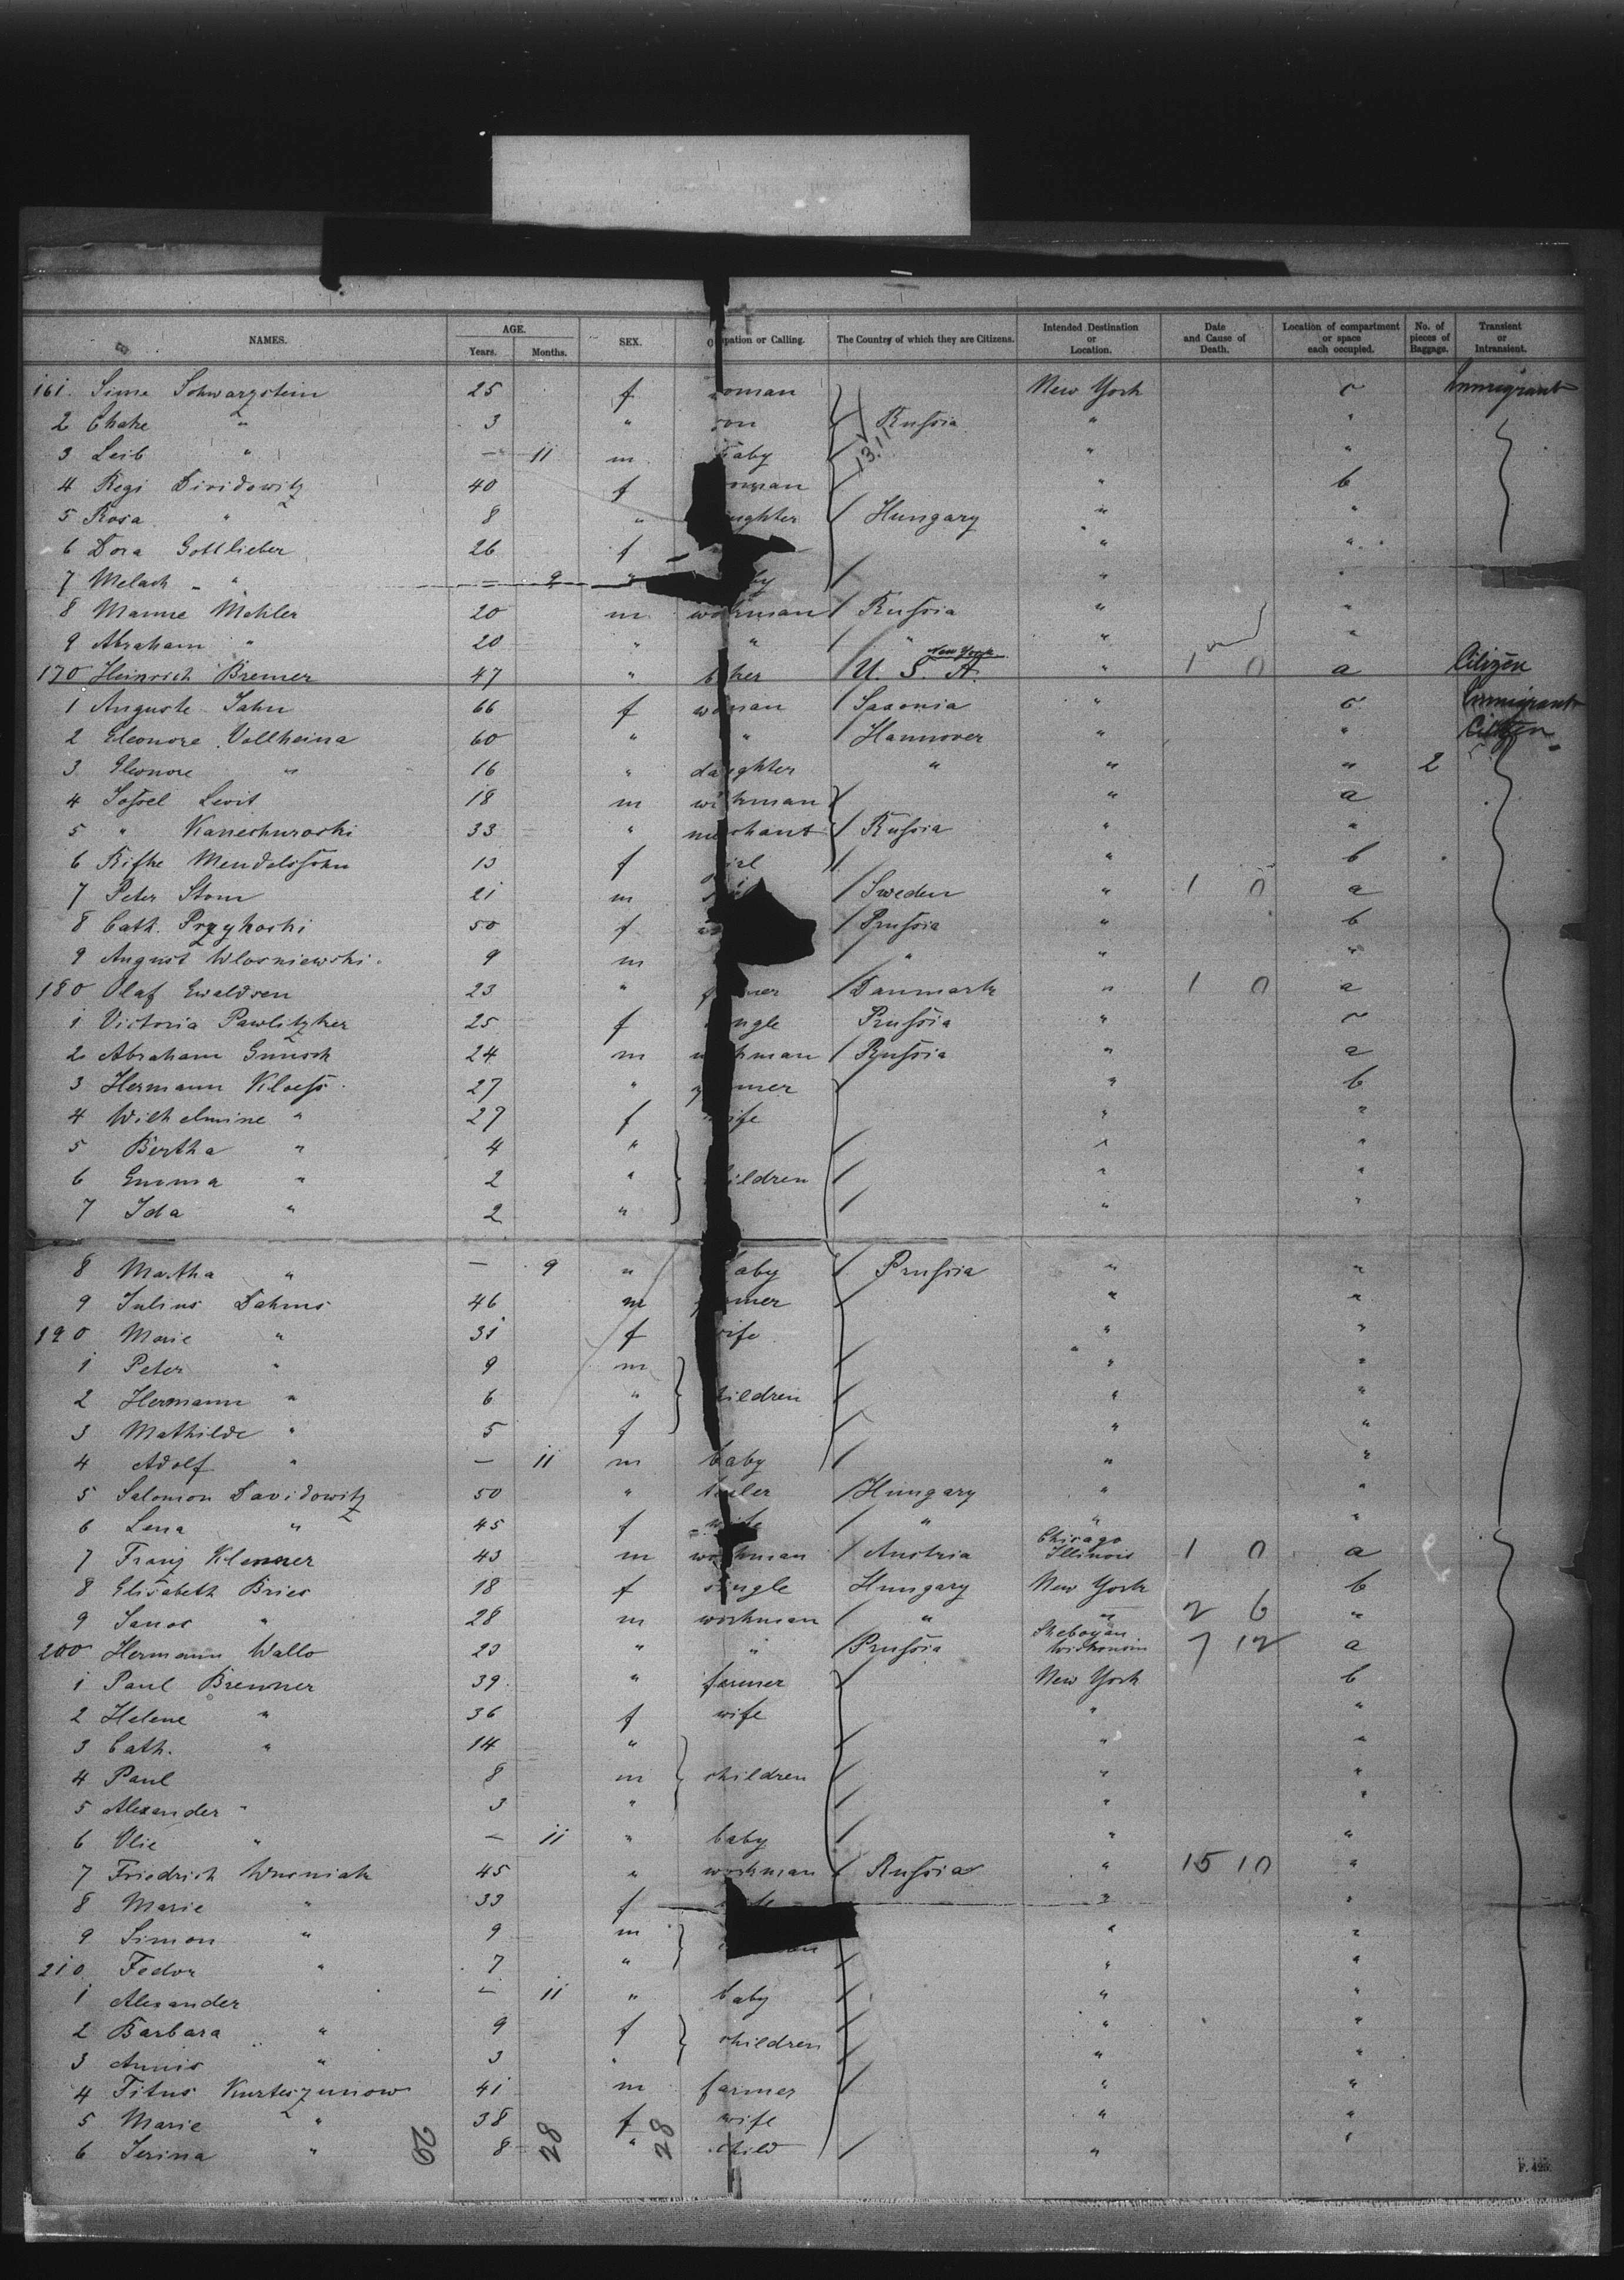 NAMES. AGE. Years. Months. SEX. pation or Calling. The Country of which they are Citizens. Intended Destination or Location. Date and Cause of Death. Location of compartment or space each occupied. No. of pieces of Baggage. Transient or Intransient.
161. Sime Schwarzstein 25 f oman New York c Immigrant
2 Chake " 3 " son Russia "
3 Leib " — 11 m baby " "
4 Regi Dividowitz 40 f oman " b
5 Rosa " 8 " ughter Hungary " "
6 Dora Gottlieber 26 f " "
7 Melach " — 9 " by " "
8 Manne Mehler 20 m workman Russia " "
9 Abraham " 20 " " " " "
New York
170 Heinrich Bremer 47 " U. S. A. " 1 0 a Citizen
1 Auguste Jahn 66 f woman Saxonia " c Immigrant
2 Eleonore Vollheina 60 " " Hannover " " Citizen
3 Eleonore " 16 " daughter " " " 2
4 Jossel Lewit 18 m workman " a
5 " Kaneschuroski 33 " merchant Russia " "
6 Rifke Mendelssohn 13 f girl " b
7 Peter Strom 21 m Sweden " 1 0 a
8 Cath. Przykoski 50 f Prussia " b
9 August Wlosniewski 9 m " " "
180 Olaf Ewaldsen 23 " Danmark " 1 0 a
1 Victoria Pawlitzker 25 f ngle Prussia " c
2 Abraham 24 m workman Russia " a
3 Hermann Kloess 27 " mer " b
4 Wilhelmine " 27 f wife " "
5 Bertha " 4 " " "
6 Emma " 2 " ildren " "
7 Ida " 2 " " "
8 Martha " — 9 " baby Prussia " "
9 Julius Dahms 46 m rmer " "
190 Marie " 31 f wife " "
1 Peter " 9 m " "
2 Hermann " 6 " hildren " "
3 Mathilde " 5 f " "
4 Adolf " — 11 m baby " "
5 Salomon Davidowitz 50 " Hungary " "
6 Lena " 45 f wife " " "
Chicago
7 Franz Klenner 43 m workman Austria Illinois 1 0 a
8 Elisabeth Bries 18 f single Hungary New York b
9 Janos " 28 m workman " " 2 6 "
Sheboyan
200 Hermann Wallo 23 " " Prussia Wisconsin 7 12 a
1 Paul Brenner 39 " farmer New York b
2 Helene " 36 f wife " "
3 Cath. " 14 " " "
4 Paul 8 m children " "
5 Alexander " 3 " " "
6 Olie " — 11 " baby " "
7 Friedrich Wusniak 45 " workman Russia " 15 10 "
8 Marie " 33 f " "
9 Simon " 9 m " "
210 Fedor " 7 " " "
1 Alexander — 11 " baby " "
2 Barbara " 9 f children " "
3 Annis " 3 " " "
4 Titus Kurteszunow 41 m farmer " "
5 Marie " 38 f wife " "
6 Jerina " 8 " child " "
29 28 28
F. 425.